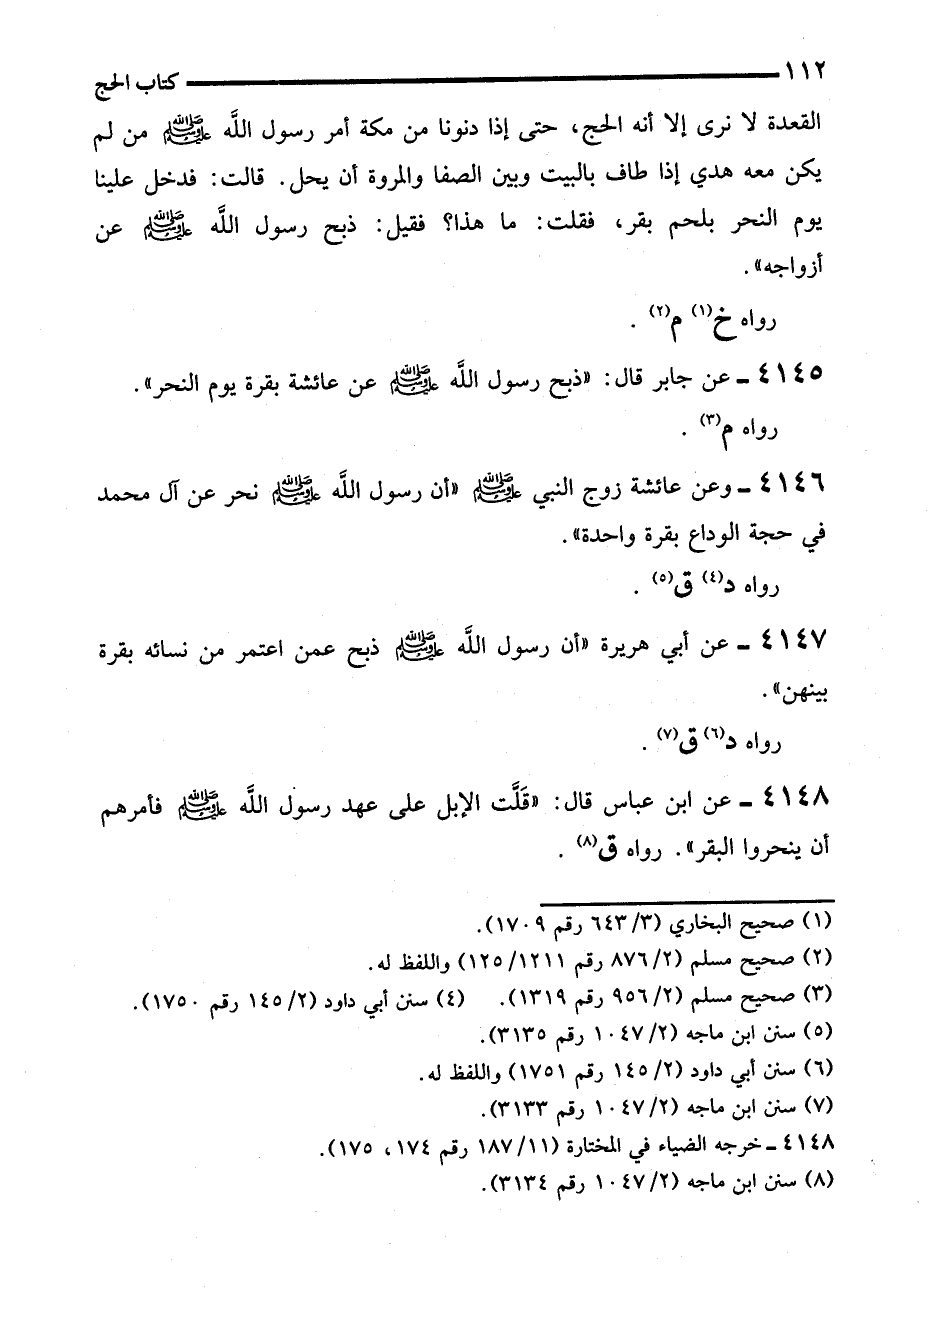 ١١٢ كتاب الحج
القعدة لا نرى إلا أنه الحج، حتى إذا دنونا من مكة أمر رسول اللَّه ﷺ من لم
يكن معه هدي إذا طاف بالبيت وبين الصفا والمروة أن يحل. قالت: فدخل علينا
يوم النحر بلحم بقر، فقلت: ما هذا؟ فقيل: ذبح رسول اللَّه ﷺ عن
أزواجه».
رواه خ(١) م(٢) .
٤١٤٥ ـ عن جابر قال: «ذبح رسول اللَّه ﷺ عن عائشة بقرة يوم النحر».
رواه م(٣) .
٤١٤٦ ـ وعن عائشة زوج النبي ﷺ «أن رسول اللَّه ﷺ نحر عن آل محمد
في حجة الوداع بقرة واحدة».
رواه د(٤) ق(٥) .
٤١٤٧ ـ عن أبي هريرة «أن رسول اللَّه ﷺ ذبح عمن اعتمر من نسائه بقرة
بينهن».
رواه د(٦) ق(٧) .
٤١٤٨ ـ عن ابن عباس قال: «قَلَّت الإبل على عهد رسول اللَّه ﷺ فأمرهم
أن ينحروا البقر». رواه ق(٨) .
(١) صحيح البخاري (٣/ ٦٤٣ رقم ١٧٠٩).
(٢) صحيح مسلم (٢/ ٨٧٦ رقم ١٢١١/ ١٢٥) واللفظ له.
(٣) صحيح مسلم (٢/ ٩٥٦ رقم ١٣١٩). (٤) سنن أبي داود (٢/ ١٤٥ رقم ١٧٥٠).
(٥) سنن ابن ماجه (٢/ ١٠٤٧ رقم ٣١٣٥).
(٦) سنن أبي داود (٢/ ١٤٥ رقم ١٧٥١) واللفظ له.
(٧) سنن ابن ماجه (٢/ ١٠٤٧ رقم ٣١٣٣).
٤١٤٨ ـ خرجه الضياء في المختارة (١١/ ١٨٧ رقم ١٧٤، ١٧٥).
(٨) سنن ابن ماجه (٢/ ١٠٤٧ رقم ٣١٣٤).